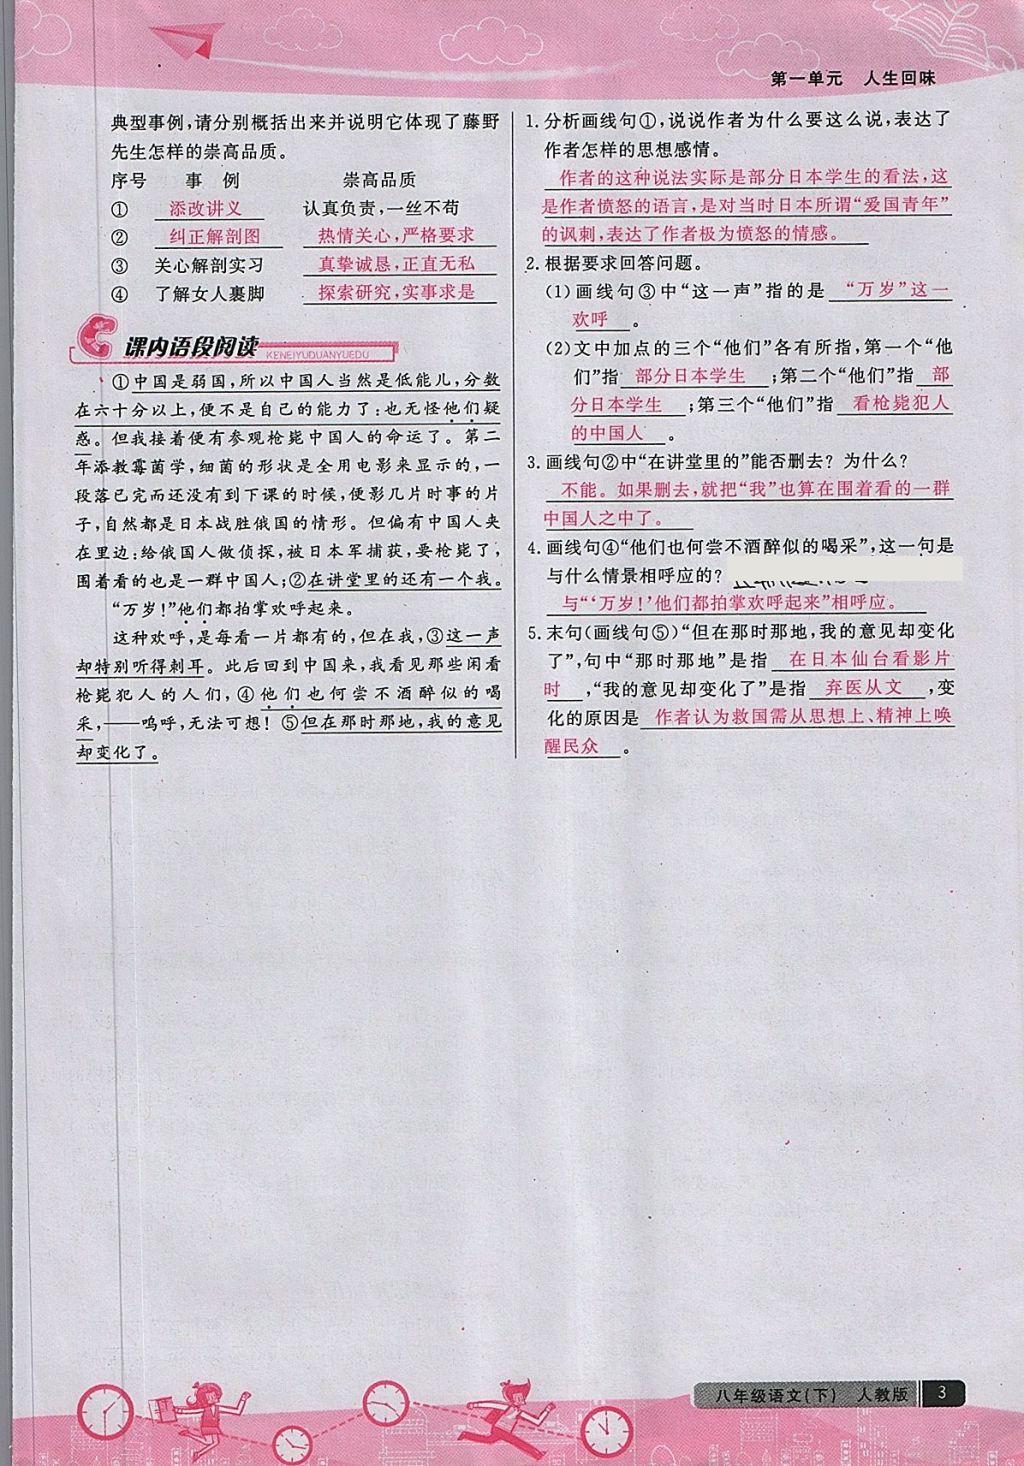 第一单元　人生回味
典型事例,请分别概括出来并说明它体现了藤野
先生怎样的崇高品质。
序号　事　例　崇高品质
①　添改讲义　认真负责,一丝不苟
②　纠正解剖图　热情关心,严格要求
③　关心解剖实习　真挚诚恳,正直无私
④　了解女人裹脚　探索研究,实事求是
课内语段阅读
KENEIYUDUANYUEDU
①中国是弱国,所以中国人当然是低能儿,分数
在六十分以上,便不是自己的能力了:也无怪他们疑
惑。但我接着便有参观枪毙中国人的命运了。第二
年添教霉菌学,细菌的形状是全用电影来显示的,一
段落已完而还没有到下课的时候,便影几片时事的片
子,自然都是日本战胜俄国的情形。但偏有中国人夹
在里边:给俄国人做侦探,被日本军捕获,要枪毙了,
围着看的也是一群中国人;②在讲堂里的还有一个我。
“万岁!”他们都拍掌欢呼起来。
这种欢呼,是每看一片都有的,但在我,③这一声
却特别听得刺耳。此后回到中国来,我看见那些闲看
枪毙犯人的人们,④他们也何尝不酒醉似的喝
采,——呜呼,无法可想!⑤但在那时那地,我的意见
却变化了。
1.分析画线句①,说说作者为什么要这么说,表达了
作者怎样的思想感情。
作者的这种说法实际是部分日本学生的看法,这
是作者愤怒的语言,是对当时日本所谓“爱国青年”
的讽刺,表达了作者极为愤怒的情感。
2.根据要求回答问题。
(1)画线句③中“这一声”指的是　“万岁”这一
欢呼　。
(2)文中加点的三个“他们”各有所指,第一个“他
们”指　部分日本学生　;第二个“他们”指　部
分日本学生　;第三个“他们”指　看枪毙犯人
的中国人　。
3.画线句②中“在讲堂里的”能否删去？为什么？
不能。如果删去,就把“我”也算在围着看的一群
中国人之中了。
4.画线句④“他们也何尝不酒醉似的喝采”,这一句是
与什么情景相呼应的？
与“‘万岁!’他们都拍掌欢呼起来”相呼应。
5.末句(画线句⑤)“但在那时那地,我的意见却变化
了”,句中“那时那地”是指　在日本仙台看影片
时　,“我的意见却变化了”是指　弃医从文　,变
化的原因是　作者认为救国需从思想上、精神上唤
醒民众　。
八年级语文(下)　人教版　3